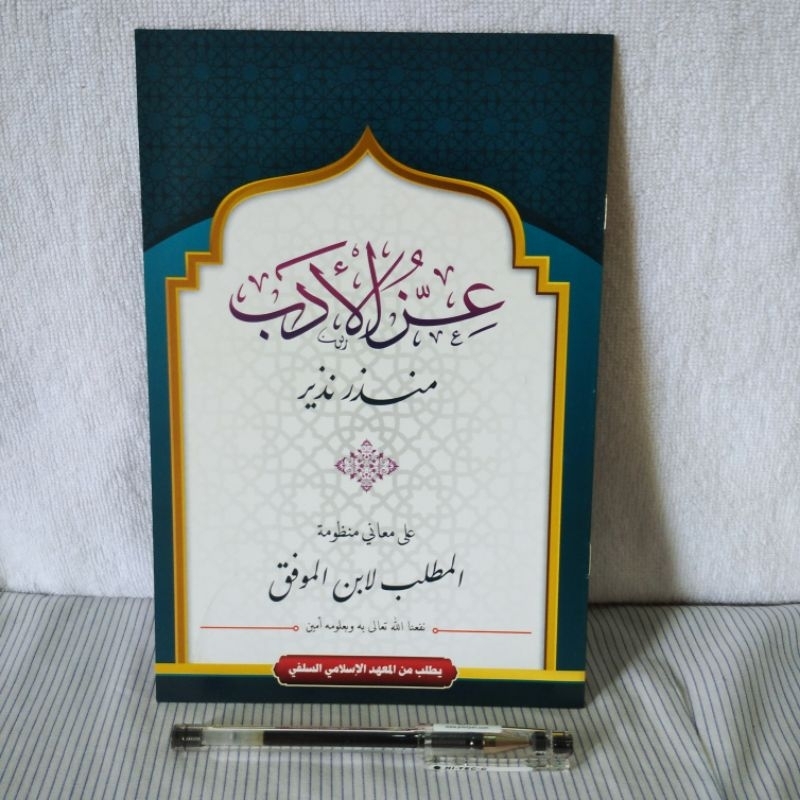 عِزُّ الأَدَب
منذر نذير
على معاني منظومة
المطلب لابن الموفق
نفعنا الله تعالى به وبعلومه أمين
يطلب من المعهد الإسلامي السلفي
HI-TEC-C